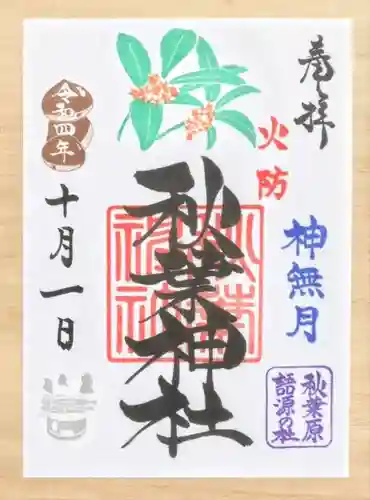 奉拝
火防
神無月
秋葉原
語源の社
秋葉神社
秋葉神社
令和四年
十月一日